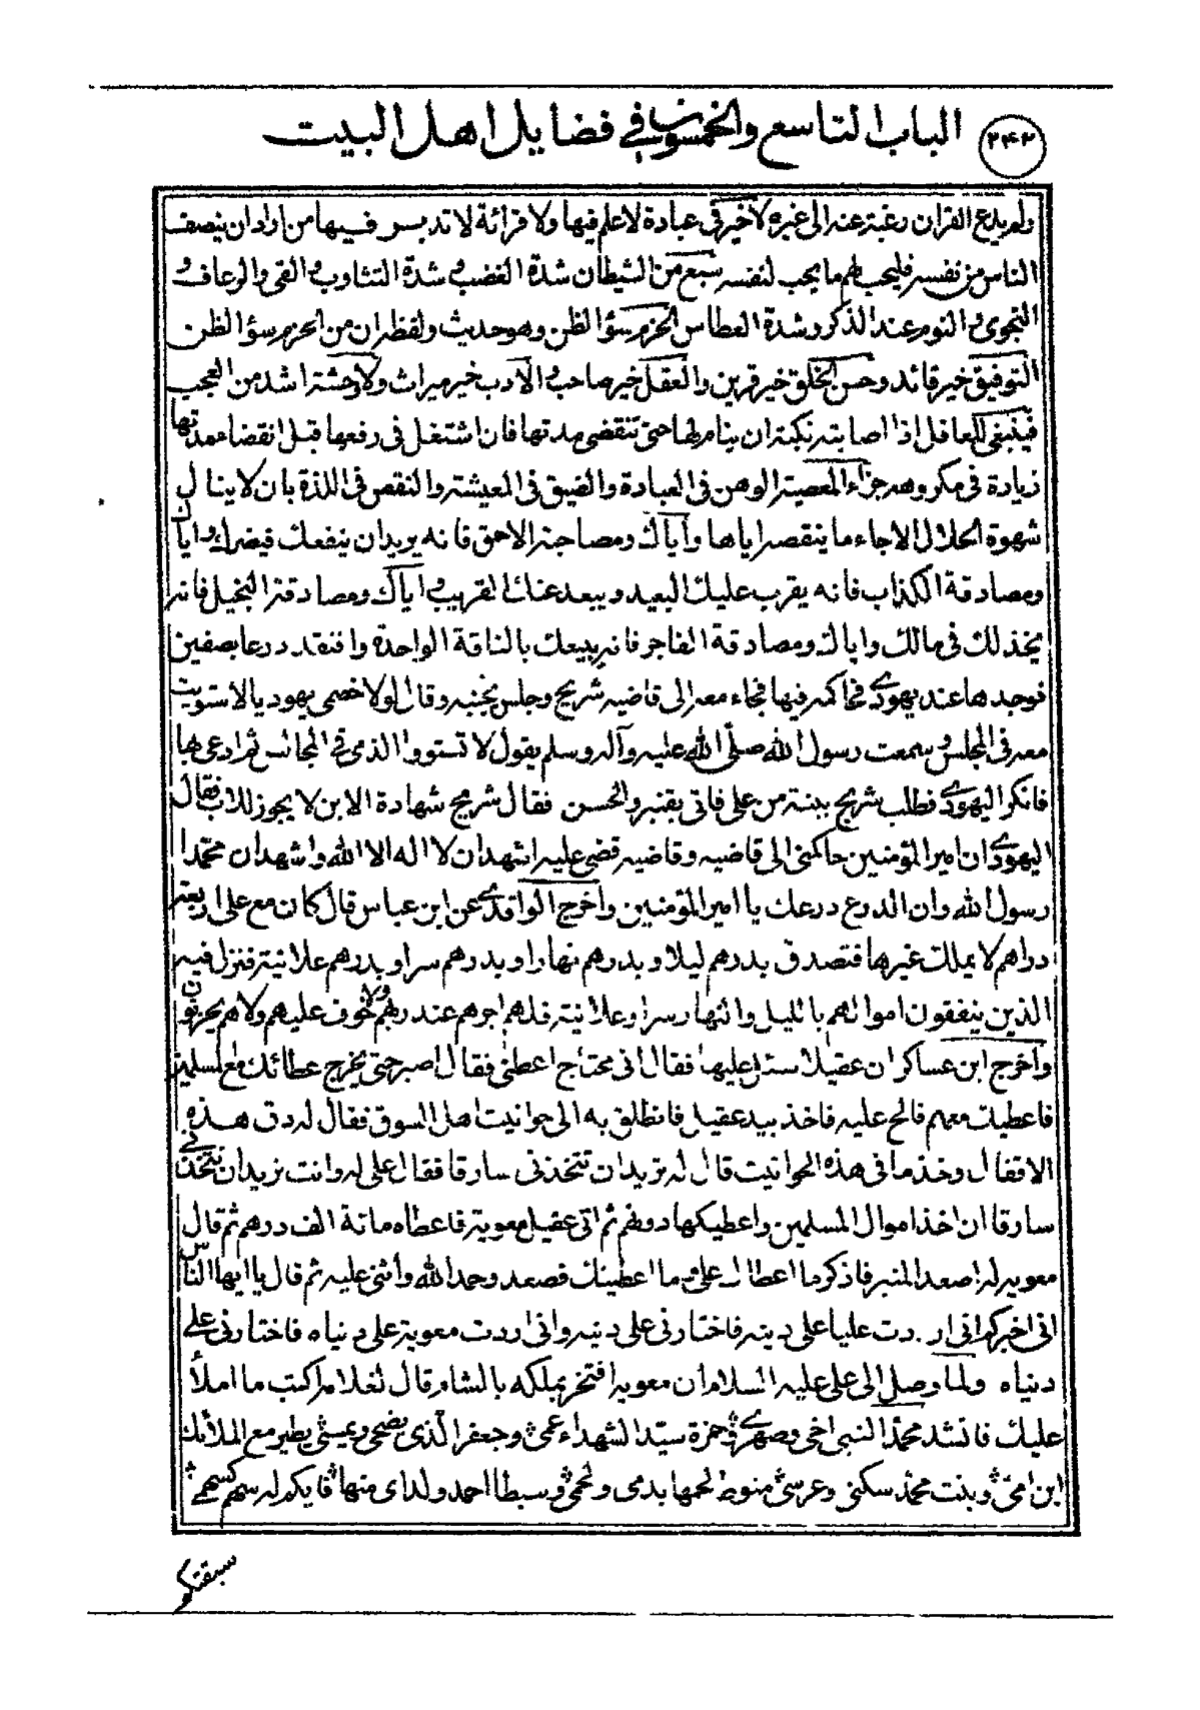 الباب التاسع والخمسون في فضايل اهل البيت
٢٤٢
ولم يدع القران رغبة عنه الى غيره لا خير في عبادة لا علم فيها ولا قرائة لا تدبر فيها من اراد ان ينصف
الناس من نفسه فليحب لهم ما يحب لنفسه سبع من الشيطان شدة الغضب و شدة التثاوب و القى والرعاف و
النجوى و النوم عند الذكر و شدة العطاس الحزم سؤ الظن وهو حديث ولفظه ان من الحزم سؤ الظن
التوفيق خير قائد وحسن الخلق خير قرين والعقل خير صاحب و الادب خير ميراث ولا وحشة اشد من العجب
فينبغي للعاقل إذا اصابته نكبة ان ينام لها حتى تنقضي مدتها فان اشتغل في رفعها قبل انقضاء مدتها
زيادة في مكروهه جزاء المعصية الوهن في العبادة والضيق في المعيشة والنقص في اللذة بان لا ينال
شهوة الحلال الا جاء ما ينقصه اياها واياك ومصاحبة الاحق فانه يريد ان ينفعك فيضرك و اياك
ومصادقة الكذاب فانه يقرب عليك البعيد ويبعد عنك القريب و اياك ومصادقة البخيل فانه
يخذلك في مالك واياك ومصادقة الفاجر فانه يبيعك بالناقة الواحدة وافتقد درعا بصفين
فوجدها عند يهودي فحاكمه فيها فجاء معه الى قاضيه شريح وجلس بجنبه وقال لولا خصمي يهوديا لاستويت
معه في المجلس و سمعت رسول الله صلّى الله عليه وآله وسلم يقول لا تستووا الذمي في المجالس ثم ادعى بها
فانكر اليهودي فطلب شريح بينة من على فاتى بقنبر والحسن فقال شريح شهادة الابن لا يجوز للاب فقال
اليهودي ان امير المؤمنين حاكمني الى قاضيه وقاضيه قضى عليه اشهد ان لا اله الا الله واشهد ان محمّدا
رسول الله وان الدرع درعك يا امير المؤمنين واخرج الواقدي عن ابن عباس قال كان مع على اربعة
دراهم لا يملك غيرها فتصدق بدرهم ليلا و بدرهم نهارا و بدرهم سرا و بدرهم علانية فنزل فيه
الذين ينفقون اموالهم بالليل والنهار سرا وعلانية فلهم اجرهم عند ربهم ولا خوف عليهم ولا هم يحزنون
واخرج ابن عساكر ان عقيلا سئل عليها فقال انى محتاج اعطنى فقال اصبر حتى يخرج عطائك مع المسلمين
فاعطيك معهم فالح عليه فاخذ بيد عقيل فانطلق به الى حوانيت اهل السوق فقال له دق هذه
الاقفال وخذ ما في هذه الحوانيت قال له تريد ان تتخذنى سارقا فقال على له وانت تريد ان تتخذني
سارقا ان اخذ اموال المسلمين واعطيكها دونهم ثم اتى عقيل معوية فاعطاه مائة الف درهم ثم قال
معويه له اصعد المنبر فاذكر ما اعطاك على و ما اعطيتك فصعد وحمد الله وأثنى عليه ثم قال يا ايها الناس
انى اخبركم انى اردت عليا على دينه فاختار نى على دينه وانى اردت معوية على دنياه فاختارنى على
دنياه ولما وصل الى على عليه السلام ان معويه افتخر بملكه بالشام قال لغلامه اكتب ما املأ
عليك فانشد محمّد النبي اخى وصهري و حمزة سيّد الشهداء عمى و جعفر الّذى يضحى ويمسى يطير مع الملائك
ابن امى و بنت محمّد سكنى وعرسى منوط لحمها بدمى و لحمى و سبطا احمد ولداى منها فايكم له سهم كسهمى
سبقتكم